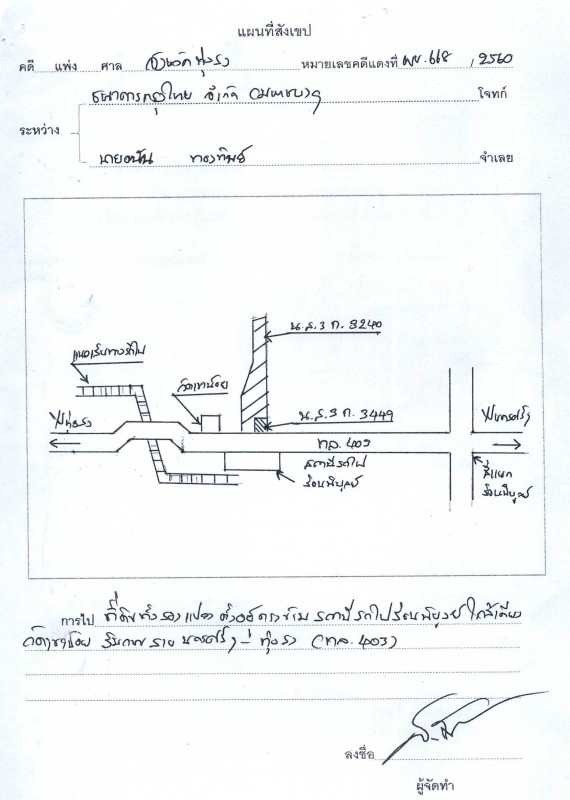 แผนที่สังเขป
คดี แพ่ง ศาล จังหวัดทุ่งสง หมายเลขคดีแดงที่ ผบ.668 / 2560
ธนาคารกรุงไทย จำกัด (มหาชน) โจทก์
ระหว่าง
นายอนัน ทองทิพย์ จำเลย
น.ส.3 ก. 3240
แนวเส้นทางรถไฟ
วัดเขาน้อย
น.ส.3 ก. 3449
ไปทุ่งสง
ไปนครศรีฯ
ทล. 403
สถานีรถไฟ
ร่อนพิบูลย์
สี่แยก
ร่อนพิบูลย์
การไป ที่ดินทั้งสองแปลง ตั้งอยู่ตรงข้าม สถานีรถไฟร่อนพิบูลย์ ใกล้เคียง
วัดเขาน้อย ริมถนนสาย นครศรีฯ - ทุ่งสง (ทล. 403)
ลงชื่อ
ผู้จัดทำ